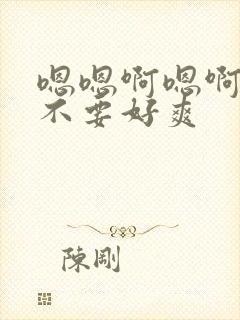 嗯嗯啊嗯啊
不要好爽
陳剛